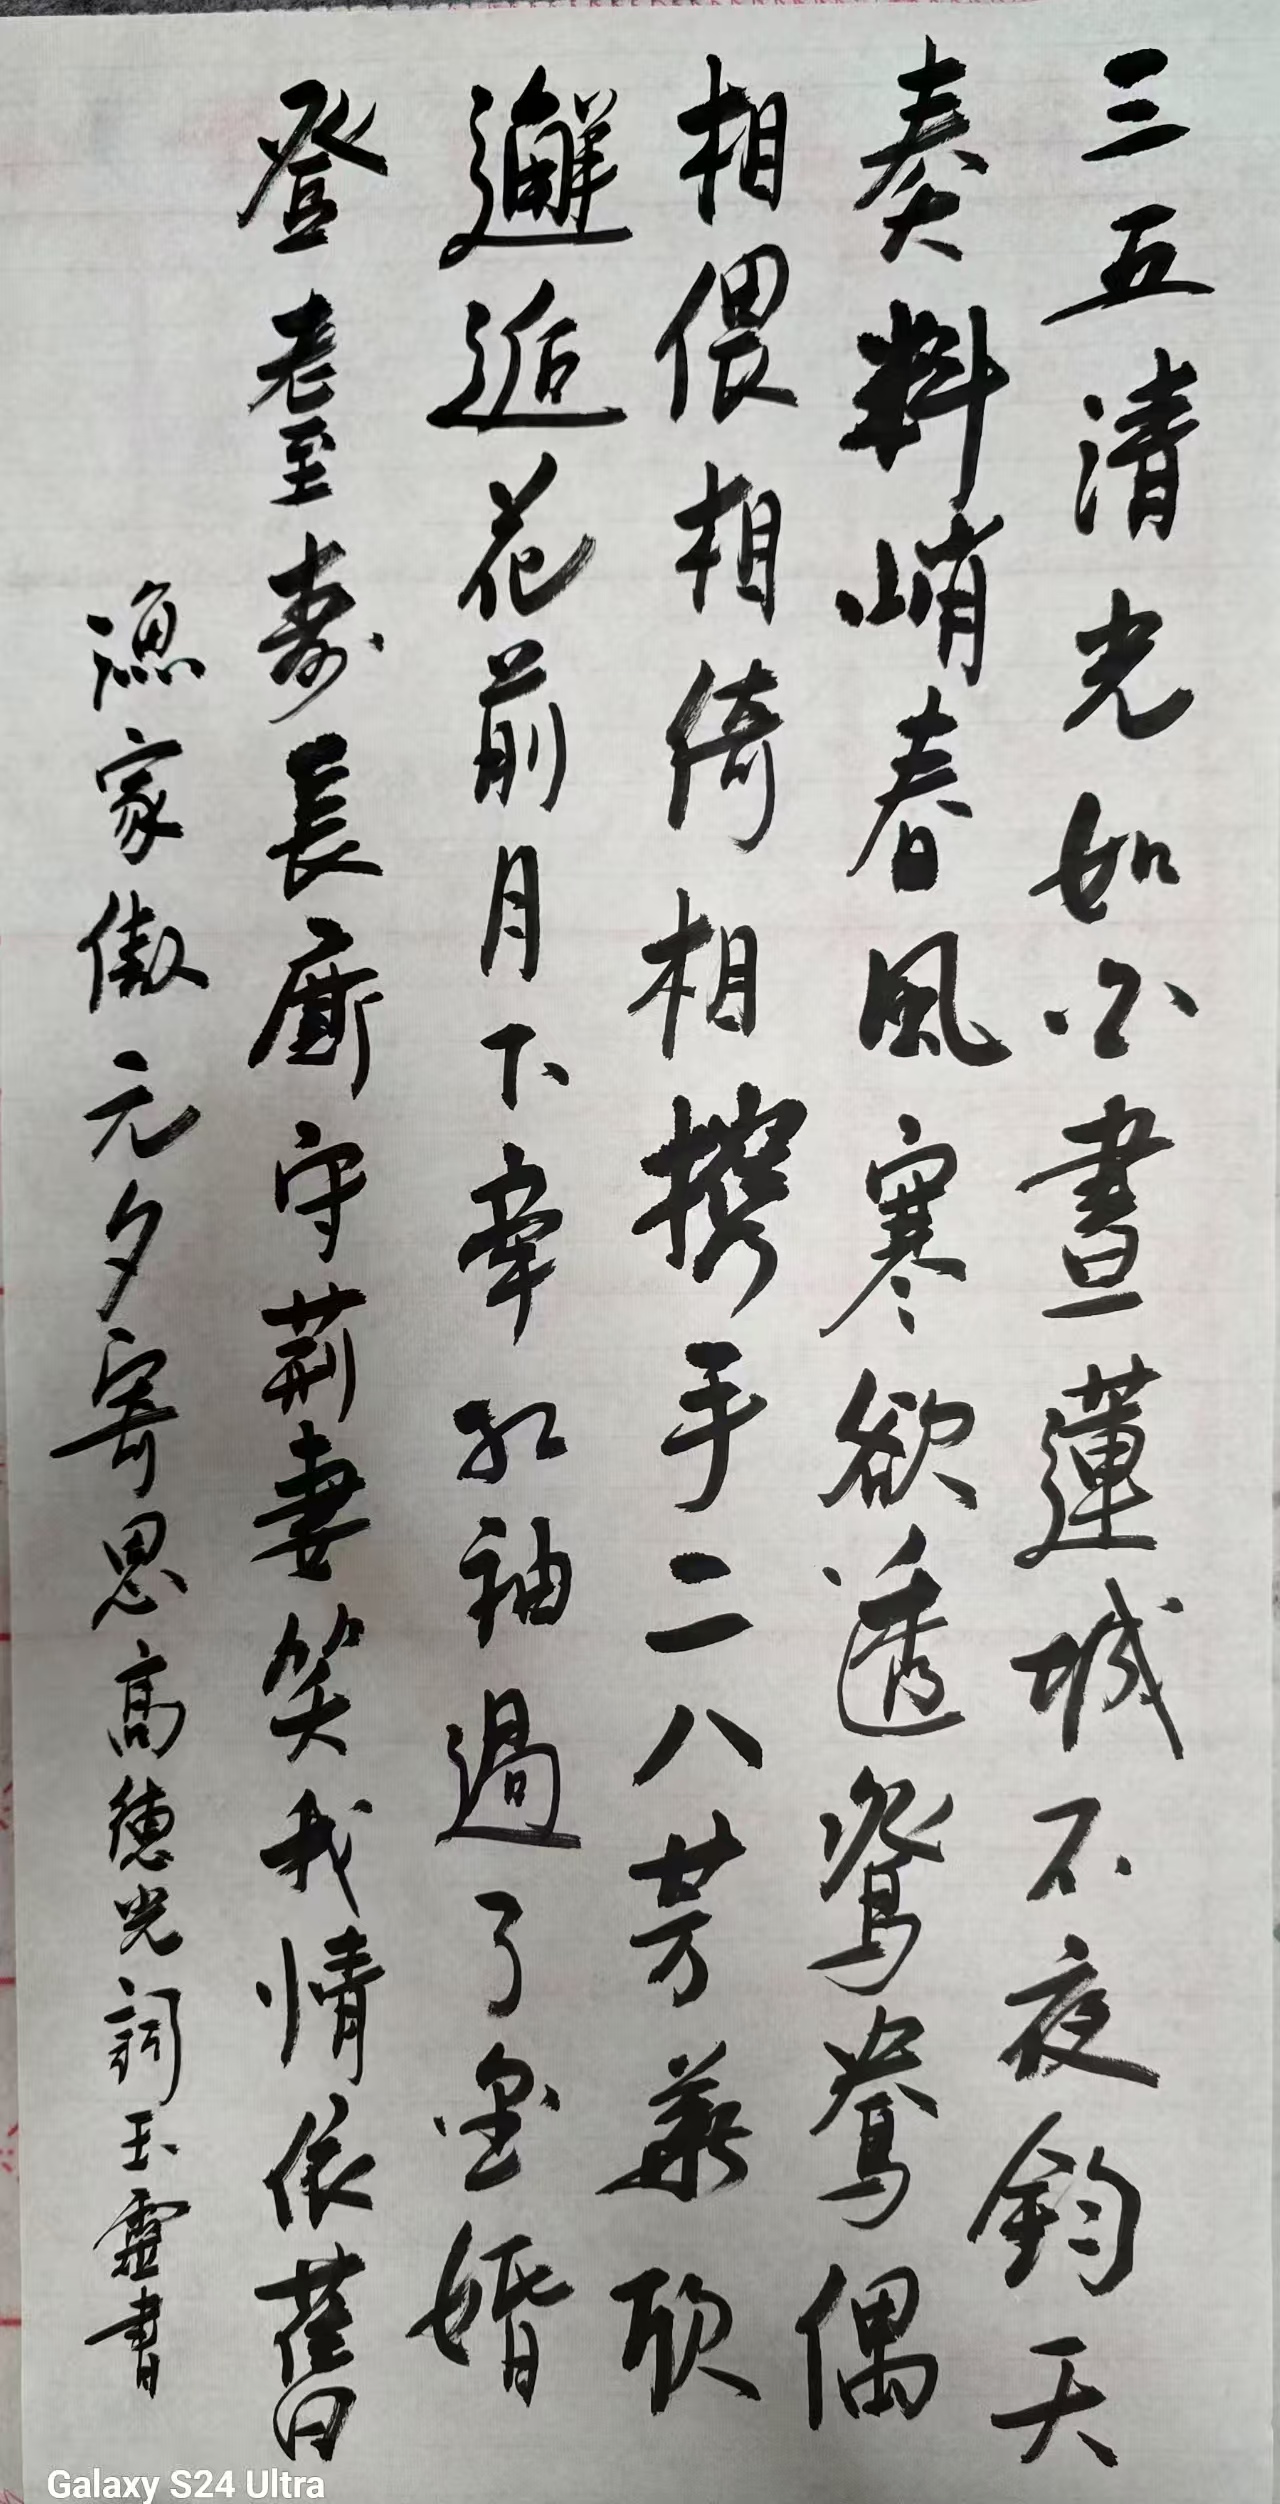 三五清光如白晝蓮城不夜鈞天
奏料峭春風寒欲透鴛鴦偶
相偎相倚相携手二八芳華欣
邂逅花前月下牽紅袖過了金婚
登耋壽長廝守荊妻笑我情依舊
漁家傲元夕寄思高德光詞玉靈書
Galaxy S24 Ultra